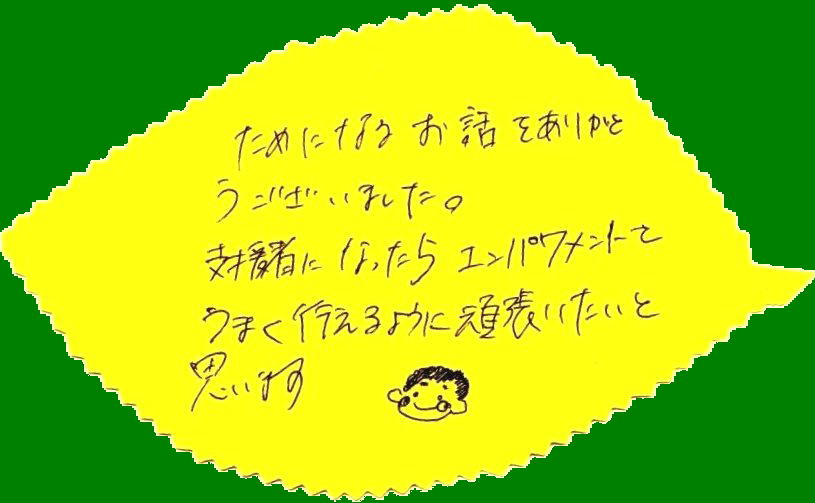 ためになる お話をありがと
うございました。
支援者になったら エンパワメントを
うまく行えるように頑張いたいと
思います